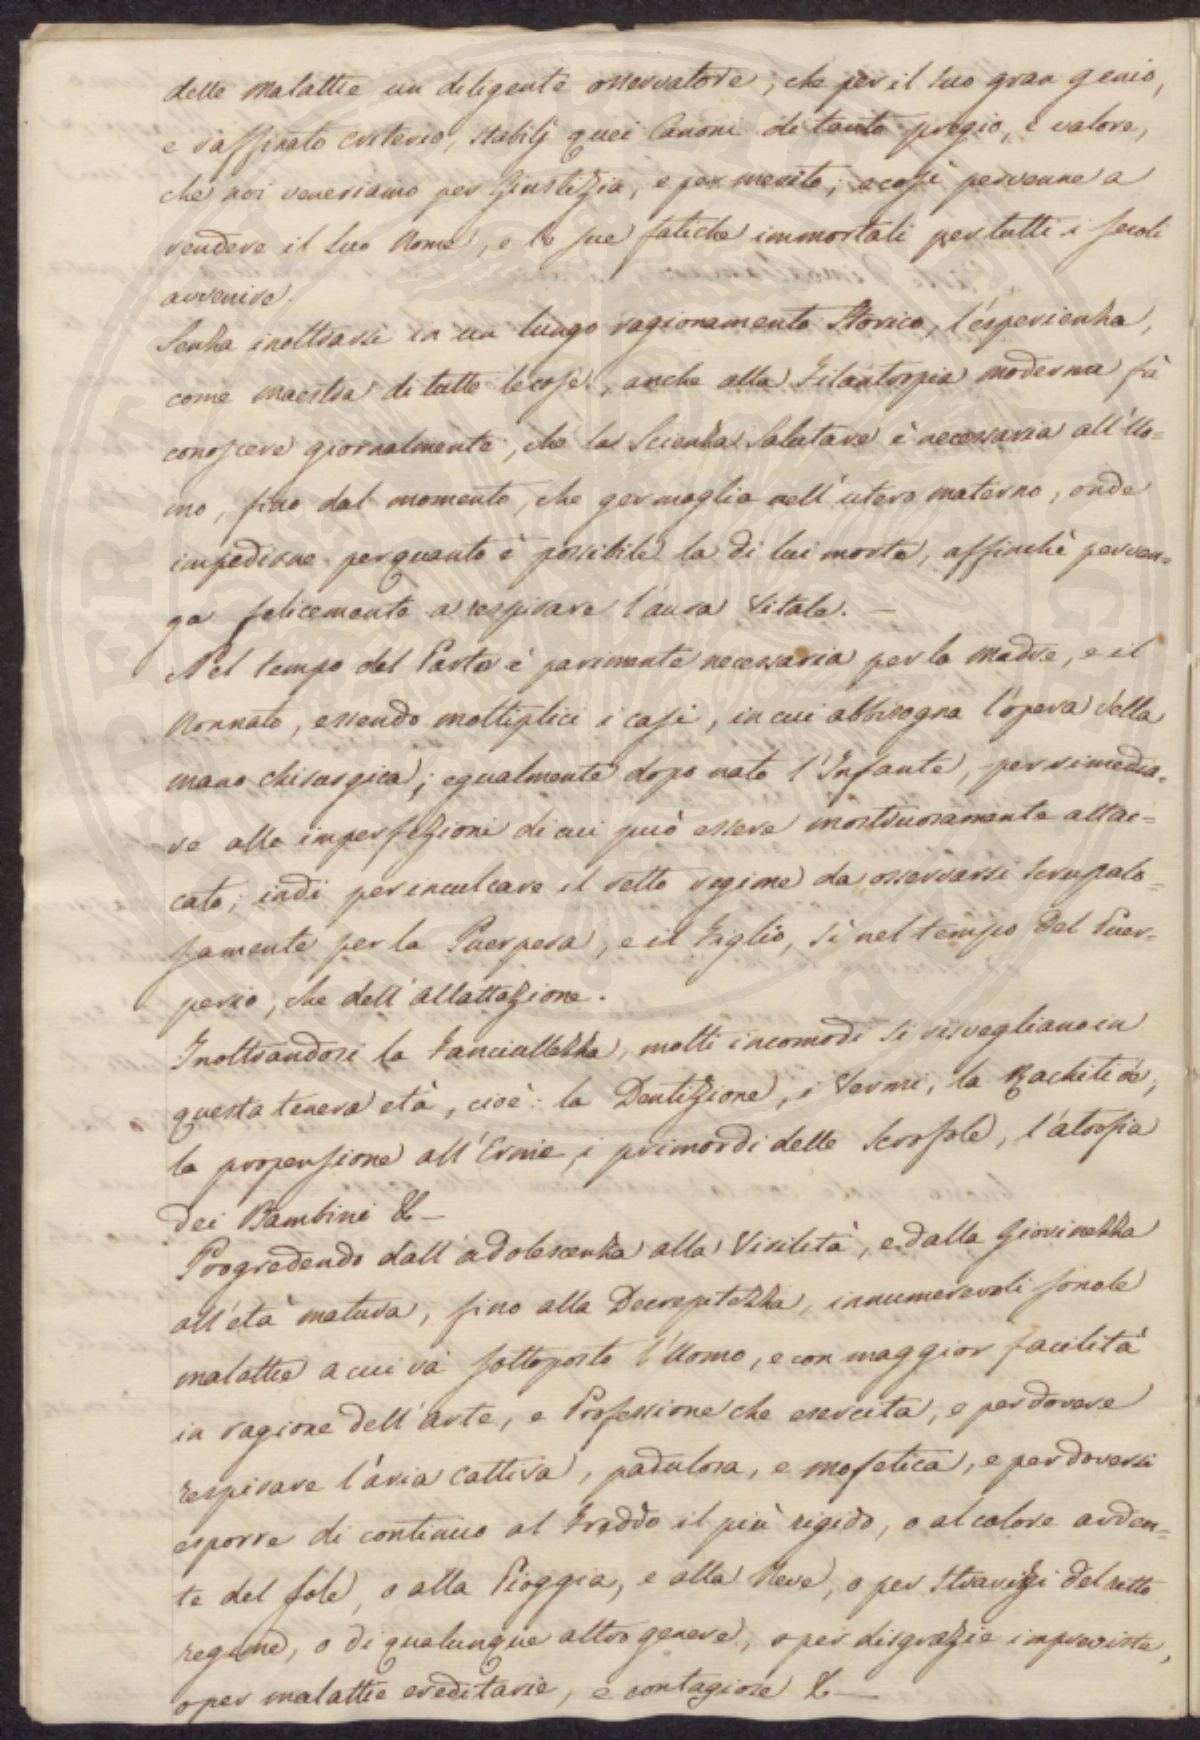 delle Malattie un deligente osservatore, che per il suo gran genio,
e raffinato criterio, stabilj quei Canoni di tanto pregio, e valore,
che noi veneriamo per Giustizia, e per merito; acosì pervenne a
rendere il suo Nome, e le sue fatiche immortali per tutti i secoli
avvenire.
Senza inoltrarsi in un lungo ragionamento Storico, l'esperienza,
come maestra di tutte le cose, anche alla Filantropia moderna fà
conoscere giornalmente, che la Scienza Salutare è necessaria all'Uo=
mo, fino dal momento, che germoglia nell'utero materno, onde
impedirne per quanto è possibile la di lui morte, affinchè perven=
ga felicemente a respirare l'aura Vitale. —
Nel tempo del Parto è parimente necessaria per la Madre, e il
Nonnato, essendo moltiplici i casi, in cui abbisogna l'opera della
mano chirurgica; egualmente dopo nato l'Infante, per rimedia=
re alle imperfezioni di cui può essere mostruosamente attac=
cato; indi per inculcare il retto regime da osservarsi scrupolo=
samente per la Puerpera, e il Figlio, sì nel tempo del Puer=
perio, che dell'allattazione.
Inoltrandosi la Fanciullezza, molti incomodi si risvegliano in
questa tenera età, cioè: la Dentizione, i Vermi, la Rachitide,
la propensione all'Ernie, i primordi delle Scrofole, l'atrofia
dei Bambini &—
Progredendo dall'adolescenza alla Virilità, e dalla Giovinezza
all'età matura, fino alla Decrepitezza, innumerevoli sono le
malattie a cui và sottoposto l'Uomo, e con maggior facilità
in ragione dell'arte, e Professione che esercita, e per dovere
respirare l'aria cattiva, padulosa, e mofetica, e per doversi
esporre di continuo al Freddo il più rigido, o al calore arden=
te del sole, o alla Pioggia, e alla Neve, o per stravizzi del retto
regime, o di qualunque altro genere, o per disgrazie impreviste,
o per malattie ereditarie, e contagiose &—